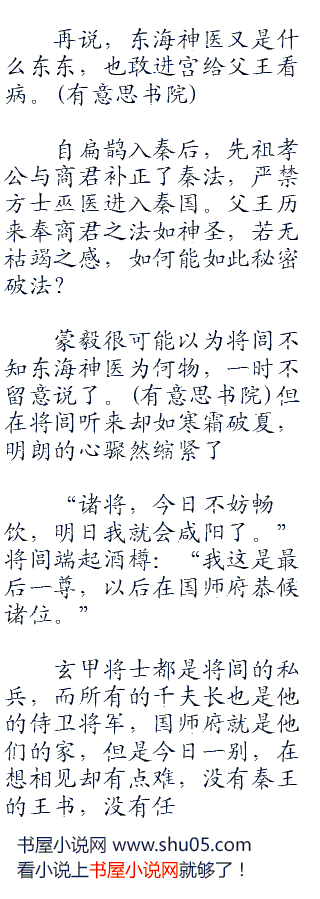 再说，东海神医又是什
么东东，也敢进宫给父王看
病。(有意思书院)
自扁鹊入秦后，先祖孝
公与商君补正了秦法，严禁
方士巫医进入秦国。父王历
来奉商君之法如神圣，若无
祜竭之感，如何能如此秘密
破法？
蒙毅很可能以为将闾不
知东海神医为何物，一时不
留意说了。(有意思书院)但
在将闾听来却如寒霜破夏，
明朗的心骤然缩紧了
“诸将，今日不妨畅
饮，明日我就会咸阳了。”
将闾端起酒樽：“我这是最
后一尊，以后在国师府恭候
诸位。”
玄甲将士都是将闾的私
兵，而所有的千夫长也是他
的侍卫将军，国师府就是他
们的家，但是今日一别，在
想相见却有点难，没有秦王
的王书，没有任
书屋小说网 www.shu05.com
看小说上书屋小说网就够了！